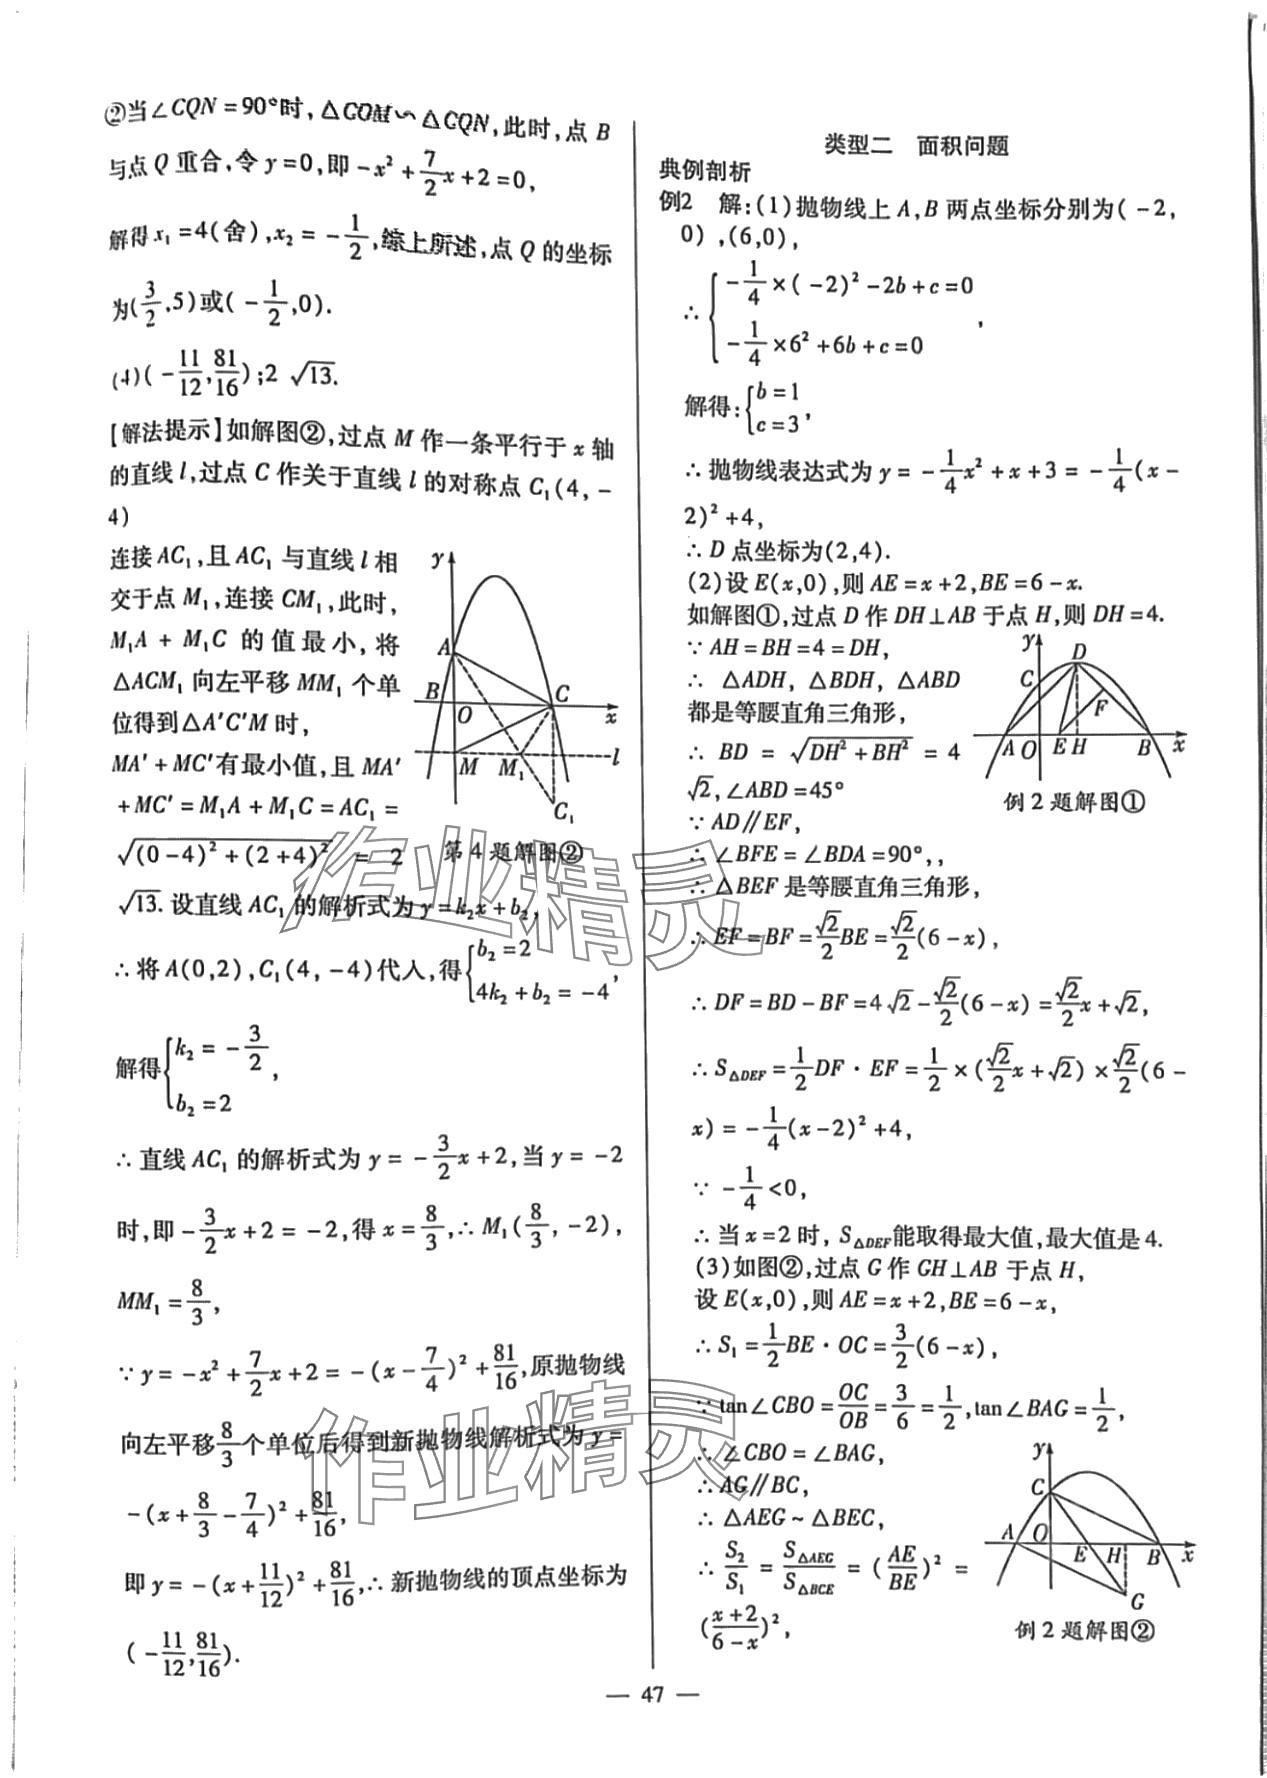 ②当∠CQN=90°时,△COM∽△CQN,此时,点B
与点Q重合,令y=0,即-x²+7/2x+2=0,
解得x₁=4(舍),x₂=-1/2,综上所述,点Q的坐标
为(3/2,5)或(-1/2,0).
(4)(-11/12,81/16);2√13.
[解法提示]如解图②,过点M作一条平行于x轴
的直线l,过点C作关于直线l的对称点C₁(4,-
4)
连接AC₁,且AC₁与直线l相
交于点M₁,连接CM₁,此时,
M₁A+M₁C的值最小,将
△ACM₁向左平移MM₁个单
位得到△A'C'M时,
MA'+MC'有最小值,且MA'
+MC'=M₁A+M₁C=AC₁=
√((0-4)²+(2+4)²)=2
√13.设直线AC₁的解析式为y=k₂x+b₂,
y
A
B
O
C
x
M
M₁
l
C₁
第4题解图②
∴将A(0,2),C₁(4,-4)代入,得{b₂=2
4k₂+b₂=-4,
解得{k₂=-3/2
b₂=2,
∴直线AC₁的解析式为y=-3/2x+2,当y=-2
时,即-3/2x+2=-2,得x=8/3,∴M₁(8/3,-2),
MM₁=8/3,
∵y=-x²+7/2x+2=-(x-7/4)²+81/16,原抛物线
向左平移8/3个单位后得到新抛物线解析式为y=
-(x+8/3-7/4)²+81/16,
即y=-(x+11/12)²+81/16,∴新抛物线的顶点坐标为
(-11/12,81/16).
类型二 面积问题
典例剖析
例2 解:(1)抛物线上A,B两点坐标分别为(-2,
0),(6,0),
∴{-1/4×(-2)²-2b+c=0
-1/4×6²+6b+c=0,
解得:{b=1
c=3,
∴抛物线表达式为y=-1/4x²+x+3=-1/4(x-
2)²+4,
∴D点坐标为(2,4).
(2)设E(x,0),则AE=x+2,BE=6-x.
如解图①,过点D作DH⊥AB于点H,则DH=4.
∵AH=BH=4=DH,
∴△ADH,△BDH,△ABD
都是等腰直角三角形,
∴BD=√(DH²+BH²)=4
√2,∠ABD=45°
∵AD∥EF,
∴∠BFE=∠BDA=90°,,
∴△BEF是等腰直角三角形,
y
D
C
F
A
O
E
H
B
x
例2题解图①
∴EF=BF=√2/2BE=√2/2(6-x),
∴DF=BD-BF=4√2-√2/2(6-x)=√2/2x+√2,
∴S△DEF=1/2DF·EF=1/2×(√2/2x+√2)×√2/2(6-
x)=-1/4(x-2)²+4,
∵-1/4<0,
∴当x=2时,S△DEF能取得最大值,最大值是4.
(3)如图②,过点G作GH⊥AB于点H,
设E(x,0),则AE=x+2,BE=6-x,
∴S₁=1/2BE·OC=3/2(6-x),
∵tan∠CBO=OC/OB=3/6=1/2,tan∠BAG=1/2,
∴∠CBO=∠BAG,
∴AG∥BC,
∴△AEG~△BEC,
∴S₂/S₁=S△AEG/S△BCE=(AE/BE)²=
((x+2)/(6-x))²,
y
C
A
O
E
H
B
x
G
例2题解图②
作业精灵
作业精灵
— 47 —